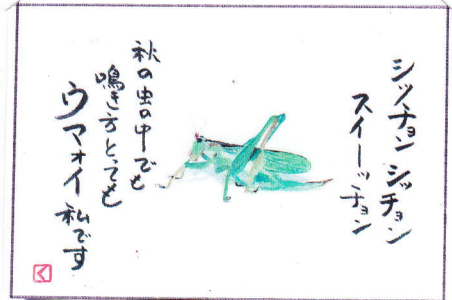 シッチョン シッチョン
スイーッチョン
秋の虫の中でも
鳴き方とっても
ウマオイ私です
く